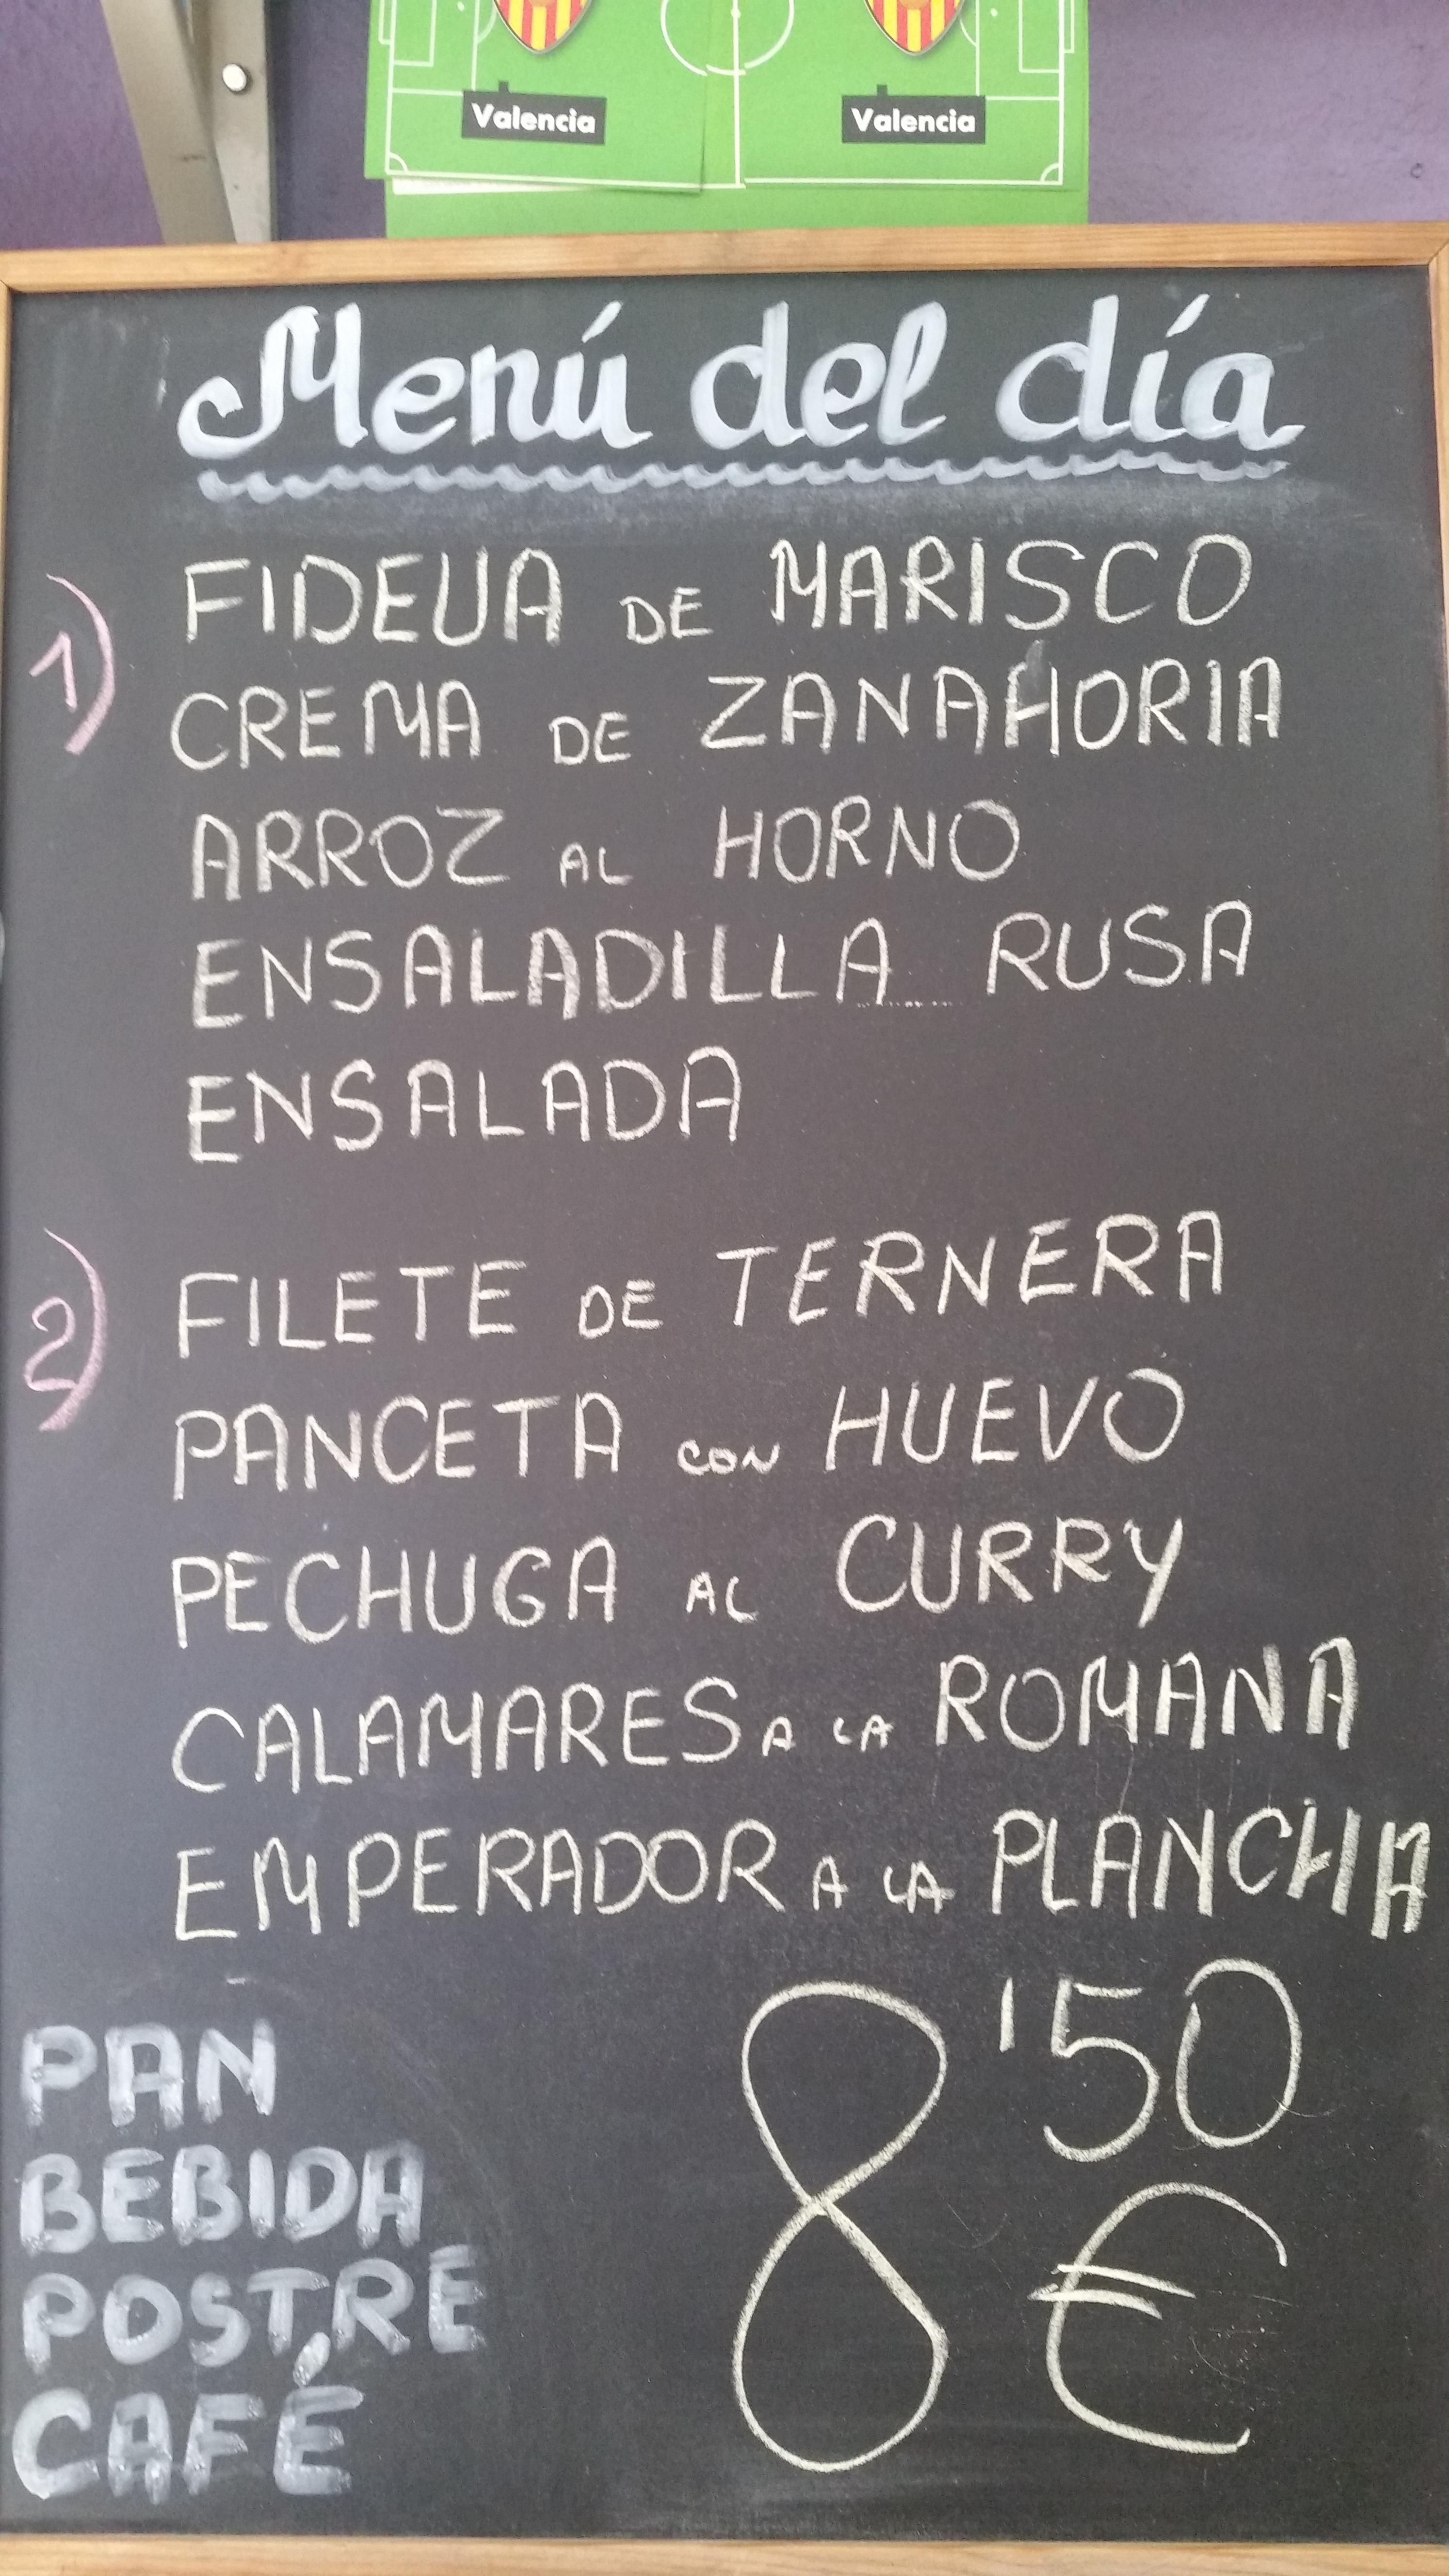 Valencia Valencia
Menú del día
1) FIDEUA DE MARISCO
CREMA DE ZANAHORIA
ARROZ AL HORNO
ENSALADILLA RUSA
ENSALADA
2) FILETE DE TERNERA
PANCETA CON HUEVO
PECHUGA AL CURRY
CALAMARES A LA ROMANA
EMPERADOR A LA PLANCHA
PAN
BEBIDA
POSTRE
CAFÉ
8'50 €